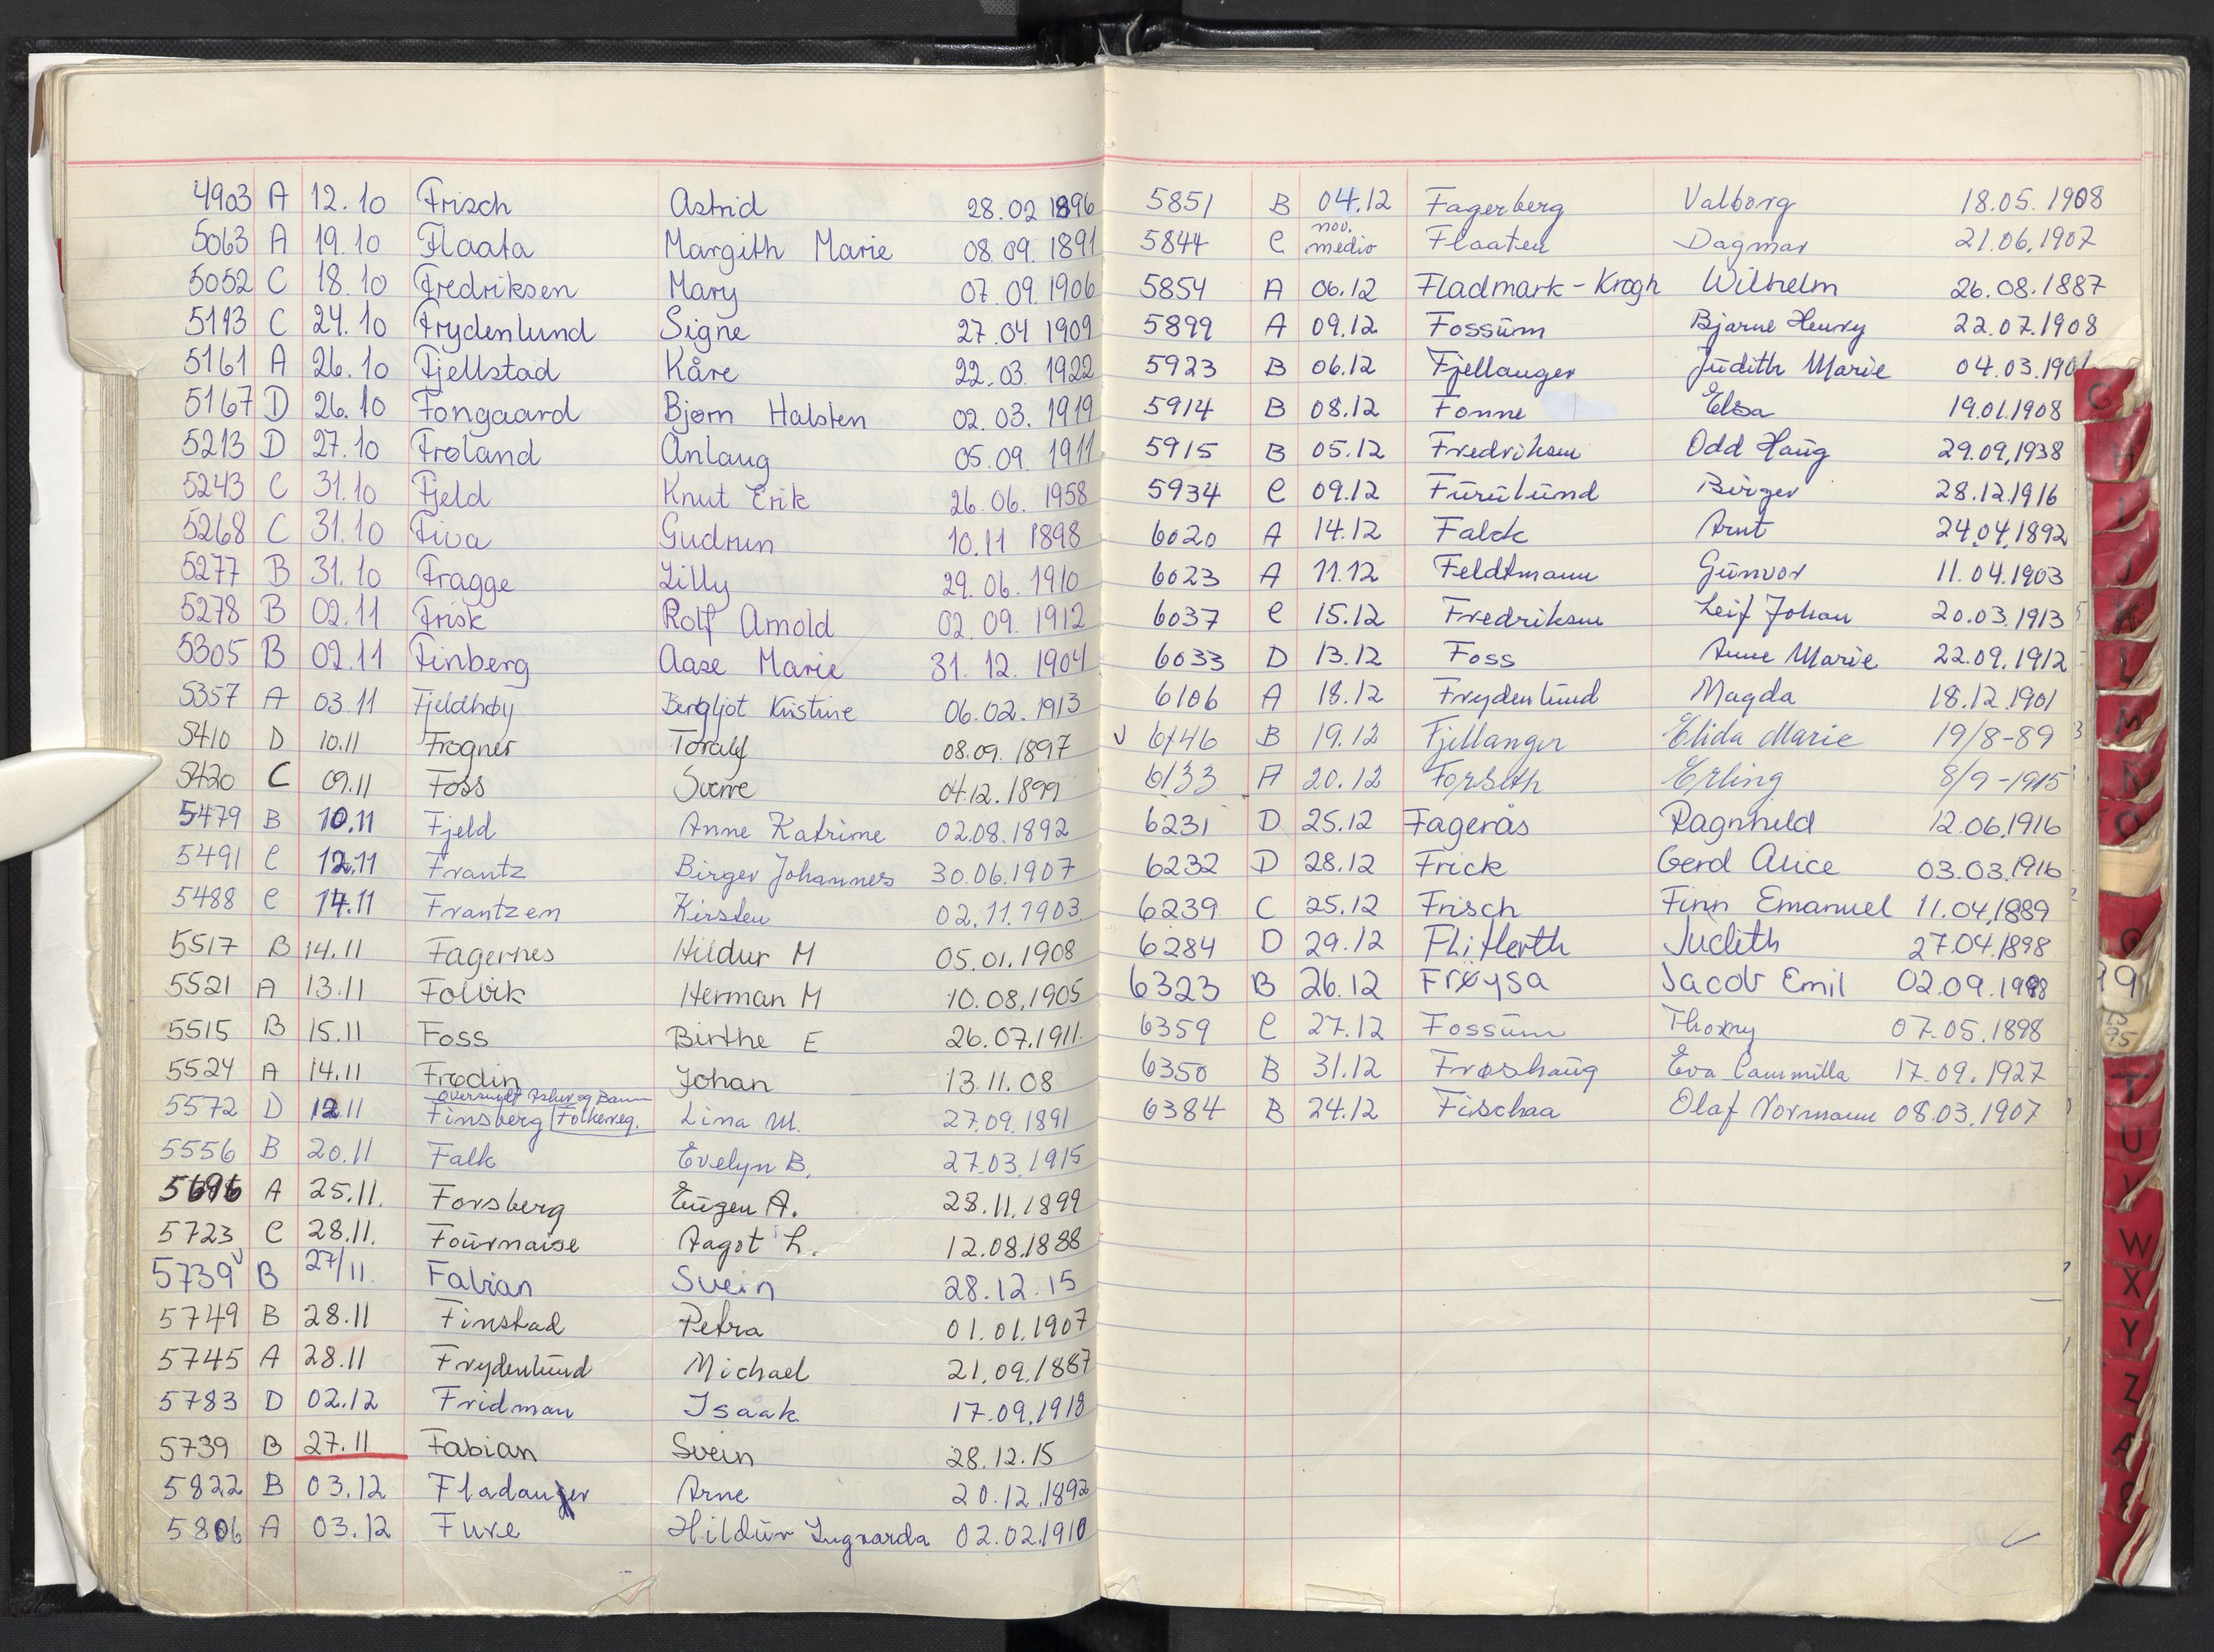 4903 A 12.10 Frisch Astrid 28.02 1896
5063 A 19.10 Flaata Margith Marie 08.09. 1891
5052 C 18.10 Fredriksen Mary 07.09. 1906
5113 C 24.10 Frydenlund Signe 27.04 1909
5161 A 26.10 Fjellstad Kåre 22.03. 1922
5167 D 26.10 Fongaard Bjørn Halsten 02.03. 1919
5213 D 27.10 Frøland Anlaug 05.09. 1911
5243 C 31.10 Fjeld Knut Erik 26.06. 1958
5268 C 31.10 Fiva Gudrun 10.11 1898
5277 B 31.10 Fragge Lilly 29.06. 1910
5278 B 02.11 Frisk Rolf Arnold 02.09. 1912
5305 B 02.11 Finberg Aase Marie 31.12. 1904
5357 A 03.11 Fjeldhøy Bergljot Kristine 06.02. 1913
5410 D 10.11 Frogner Toralf 08.09. 1897
5420 C 09.11 Foss Sverre 04.12. 1899
5479 B 10.11 Fjeld Anne Katrine 02.08.1892
5491 C 12.11 Frantz Birger Johannes 30.06.1907
5488 C 14.11 Frantzen Kirsten 02.11.1903
5517 B 14.11 Fagernes Hildur M 05.01.1908
5521 A 13.11 Folvik Herman M 10.08.1905
5515 B 15.11 Foss Birthe E 26.07.1911.
5524 A 14.11 Frødin Johan 13.11.08
oversendt Asker og Bærum
5572 D 12.11 Finsberg Folkereg. Lina M. 27.09.1891
5556 B 20.11 Falk Evelyn B. 27.03.1915
5696 A 25.11. Forsberg Eugen A. 28.11.1899
5723 C 28.11. Fournaise Aagot L. 12.08.1888
5739 B 27/11 Fabian Svein 28.12.15
5749 B 28.11 Finstad Petra 01.01.1907
5745 A 28.11 Frydenlund Michael 21.09.1887
5783 D 02.12 Fridman Isaak 17.09.1918
5739 B 27.11 Fabian Svein 28.12.15
5822 B 03.12 Fladanger Arne 20.12.1892
5806 A 03.12 Fure Hildur Ingvarda 02.02.1910
5851 B 04.12 Fagerberg Valborg 18.05.1908
nov.
5844 C medio Flaaten Dagmar 21.06.1907
5854 A 06.12 Fladmark-Krogh Wilhelm 26.08.1887
5899 A 09.12 Fossum Bjarne Henry 22.07.1908
5923 B 06.12 Fjellanger Judith Marie 04.03.190
5914 B 08.12 Fonne Elsa 19.01.1908
5915 B 05.12 Fredriksen Odd Haug 29.09.1938
5934 C 09.12 Furulund Birger 28.12.1916
6020 A 14.12 Falck Arnt 24.04.1892
6023 A 11.12 Feldtmann Gunvor 11.04.1903
6037 C 15.12 Fredriksen Leif Johan 20.03.1913
6033 D 13.12 Foss Anne Marie 22.09.1912
6106 A 18.12 Frydenlund Magda 18.12.1901
6146 B 19.12 Fjellanger Elida Marie 19/8-89
6133 A 20.12 Forseth Erling 8/9-1915
6231 D 25.12 Fagerås Ragnhild 12.06.1916
6232 D 28.12 Frick Gerd Alice 03.03.1916
6239 C 25.12 Frisch Finn Emanuel 11.04.1889
6284 D 29.12 Judith 27.04.1898
6323 B 26.12 Frøysa Jacob Emil 02.09.
6359 C 27.12 Fossum 07.05.1898
6350 B 31.12 Froshaug Eva Cammilla 17.09.1927
6384 B 24.12 Fischaa Olaf Normann 08.03.1907
G
H
I
J
K
L
M
N
O
T
U
V
W
X
Y
Z